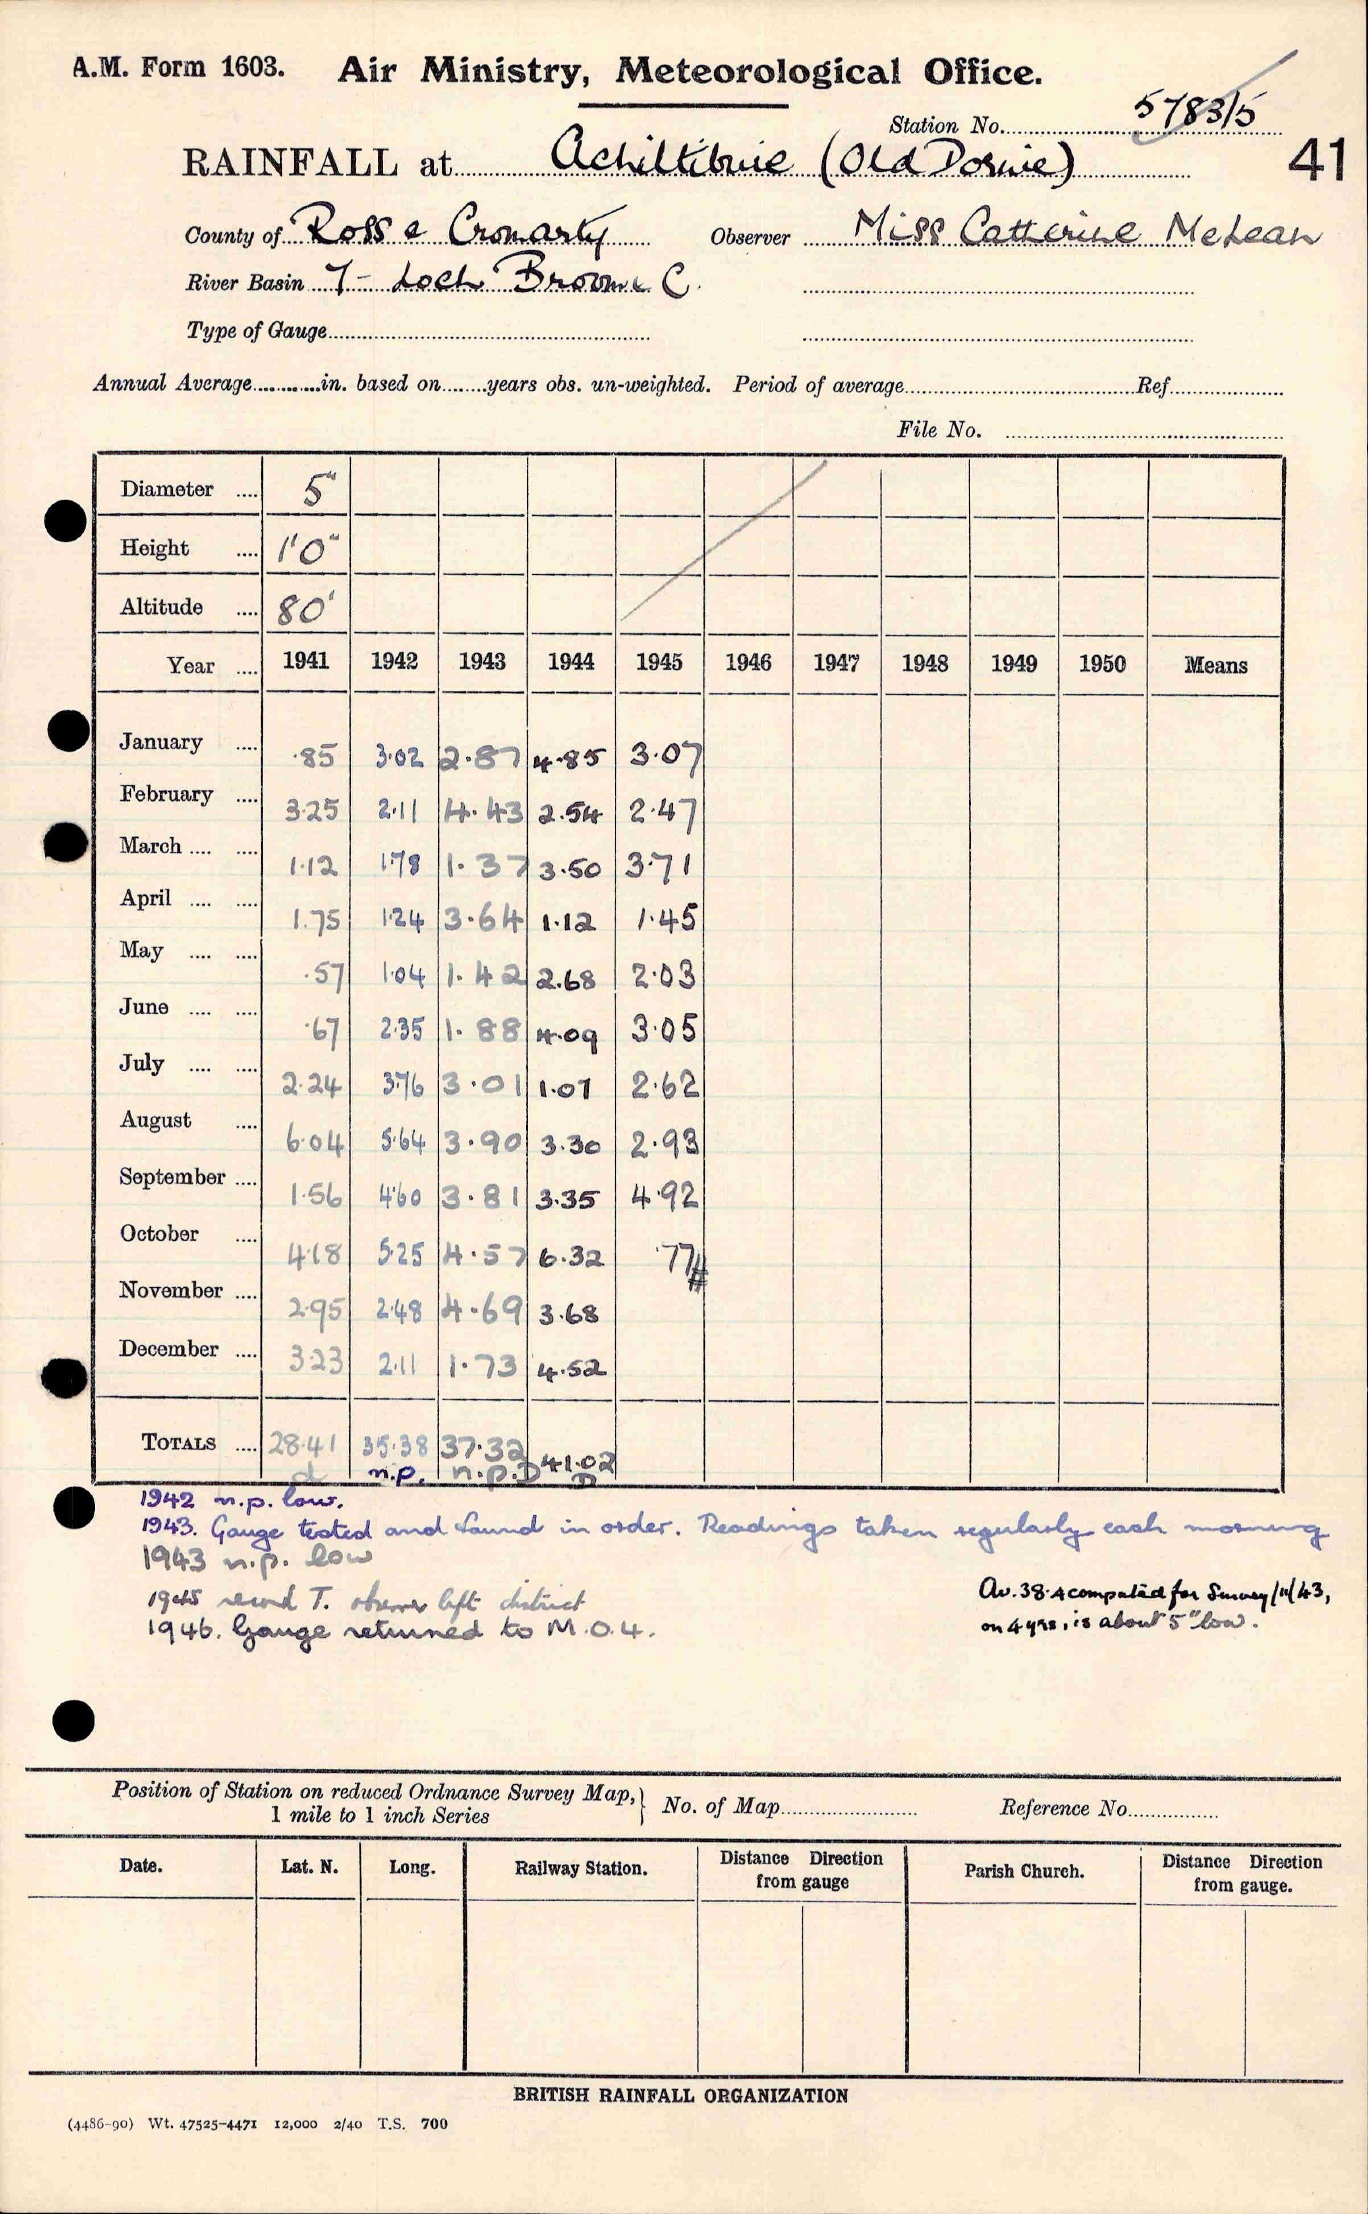 A.M. Form 1603. Air Ministry, Meteorological Office.
Station No. 5783/5
41
RAINFALL at Achiltibuie (Old Dornie)
County of Ross & Cromarty Observer Miss Catherine McLean
River Basin 7 - Loch Broom & C.
Type of Gauge
Annual Average in. based on years obs. un-weighted. Period of average Ref
File No.
Diameter 5"
Height 1'0"
Altitude 80'
Year 1941 1942 1943 1944 1945 1946 1947 1948 1949 1950 Means
January .85 3.02 2.87 4.85 3.07
February 3.25 2.11 4.43 2.54 2.47
March 1.12 1.78 1.37 3.50 3.71
April 1.75 1.24 3.64 1.12 1.45
May .57 1.04 1.42 2.68 2.03
June .67 2.35 1.88 4.09 3.05
July 2.24 3.76 3.01 1.07 2.62
August 6.04 5.64 3.90 3.30 2.93
September 1.56 4.60 3.81 3.35 4.92
October 4.18 5.25 4.57 6.32 .77#
November 2.95 2.48 4.69 3.68
December 3.23 2.11 1.73 4.52
TOTALS 28.41 35.38 37.32 41.02
d n.p. n.p.D D
1942 n.p. low.
1943. Gauge tested and found in order. Readings taken regularly each morning
1943 n.p. low
1945 record T. observer left district
1946. Gauge returned to M.O.4.
Av. 38.4 computed for Survey /11/43,
on 4 yrs, is about 5" low.
Position of Station on reduced Ordnance Survey Map,
1 mile to 1 inch Series } No. of Map Reference No.
Date. Lat. N. Long. Railway Station. Distance Direction from gauge Parish Church. Distance Direction from gauge.
BRITISH RAINFALL ORGANIZATION
(4486-90) Wt. 47525-4471 12,000 2/40 T.S. 700